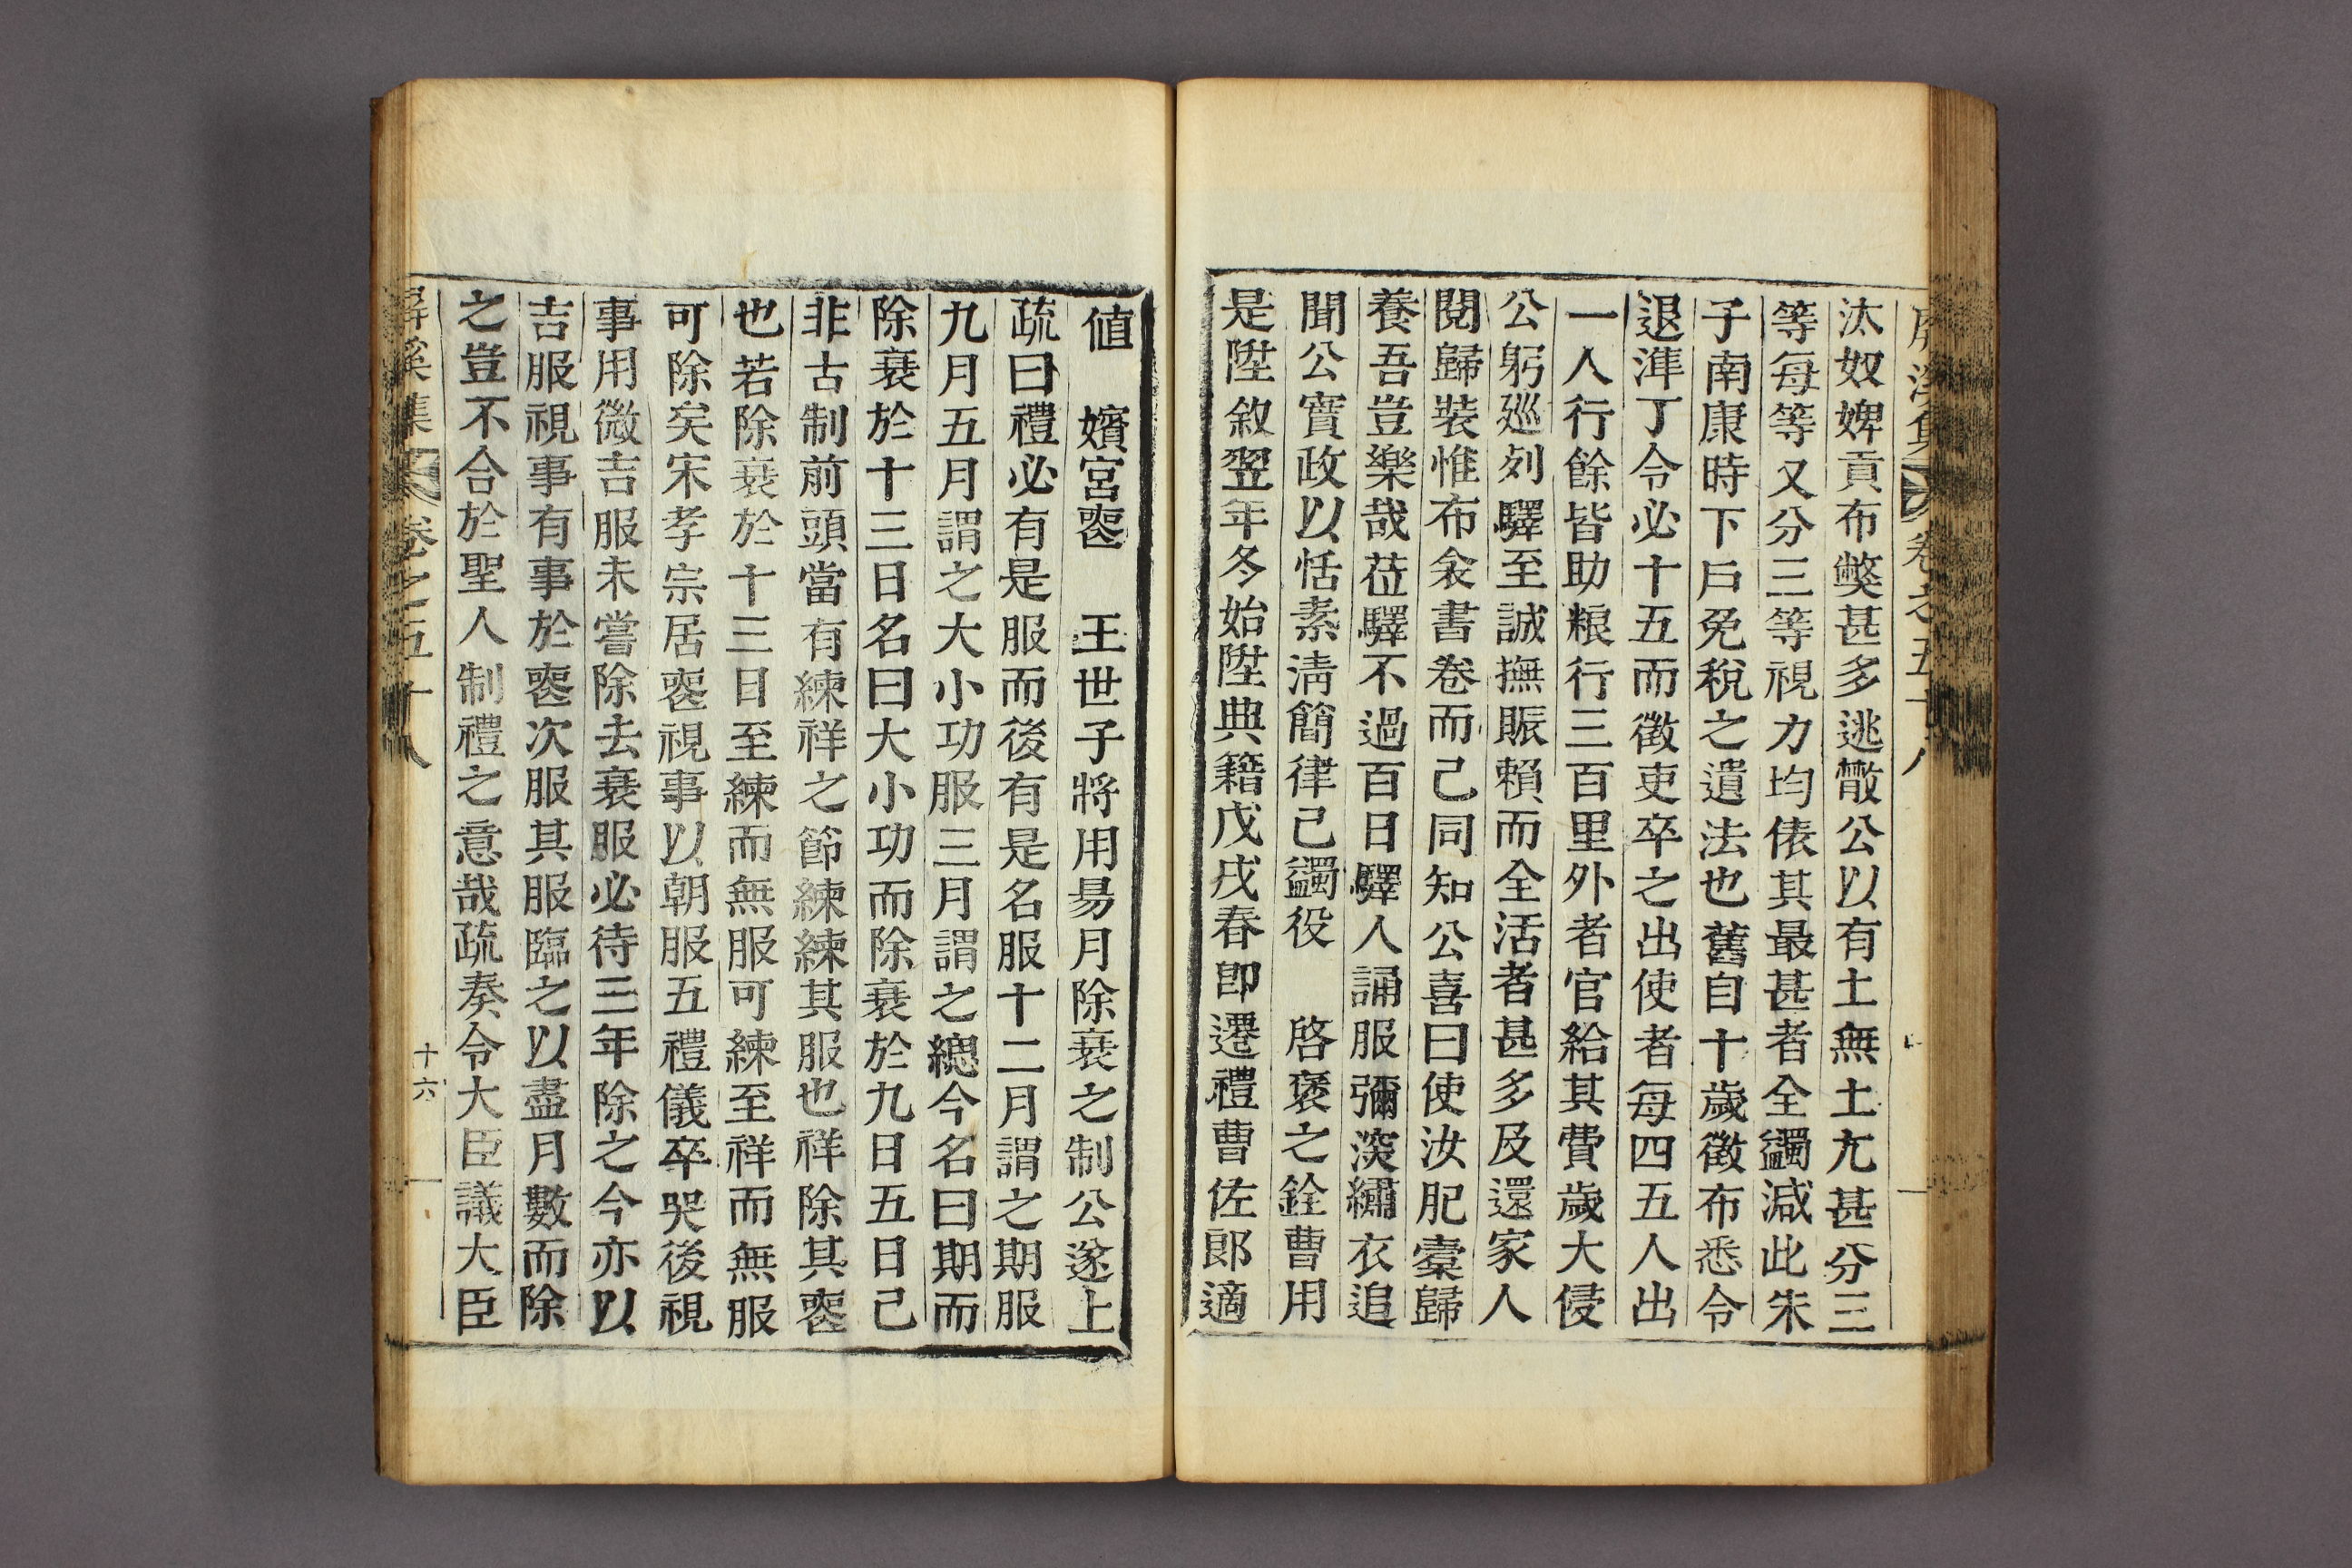 屏溪集 卷之五十八
汰奴婢貢布獘甚多逃散公以有土無土尤甚分三
等每等又分三等視力均俵其最甚者全蠲減此朱
子南康時下戶免稅之遺法也舊自十歲徵布悉令
退準丁令必十五而徵吏卒之出使者每四五人出
一人行餘皆助粮行三百里外者官給其費歲大侵
公躬廵列驛至誠撫賑賴而全活者甚多及還家人
閱歸裝惟布衾書卷而已同知公喜曰使汝肥槖歸
養吾豈樂哉莅驛不過百日驛人誦服彌深繡衣追
聞公實政以恬素淸簡律己蠲役 啓褒之銓曹用
是陞敘翌年冬始陞典籍戊戌春卽遷禮曹佐郞適
値 嬪宮喪 王世子將用易月除衰之制公遂上
疏曰禮必有是服而後有是名服十二月謂之期服
九月五月謂之大小功服三月謂之緦今名曰期而
除衰於十三日名曰大小功而除衰於九日五日已
非古制前頭當有練祥之節練練其服也祥除其喪
也若除衰於十三日至練而無服可練至祥而無服
可除矣宋孝宗居喪視事以朝服五禮儀卒哭後視
事用微吉服未嘗除去衰服必待三年除之今亦以
吉服視事有事於喪次服其服臨之以盡月數而除
之豈不合於聖人制禮之意哉疏奏令大臣議大臣
屏溪集 卷之五十八 十六